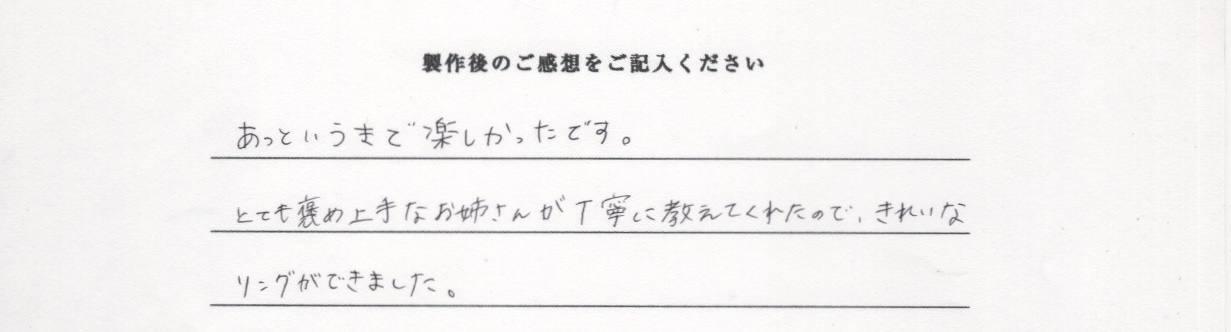 製作後のご感想をご記入ください
あっというまで楽しかったです。
とても褒め上手なお姉さんが丁寧に教えてくれたので、きれいな
リングができました。